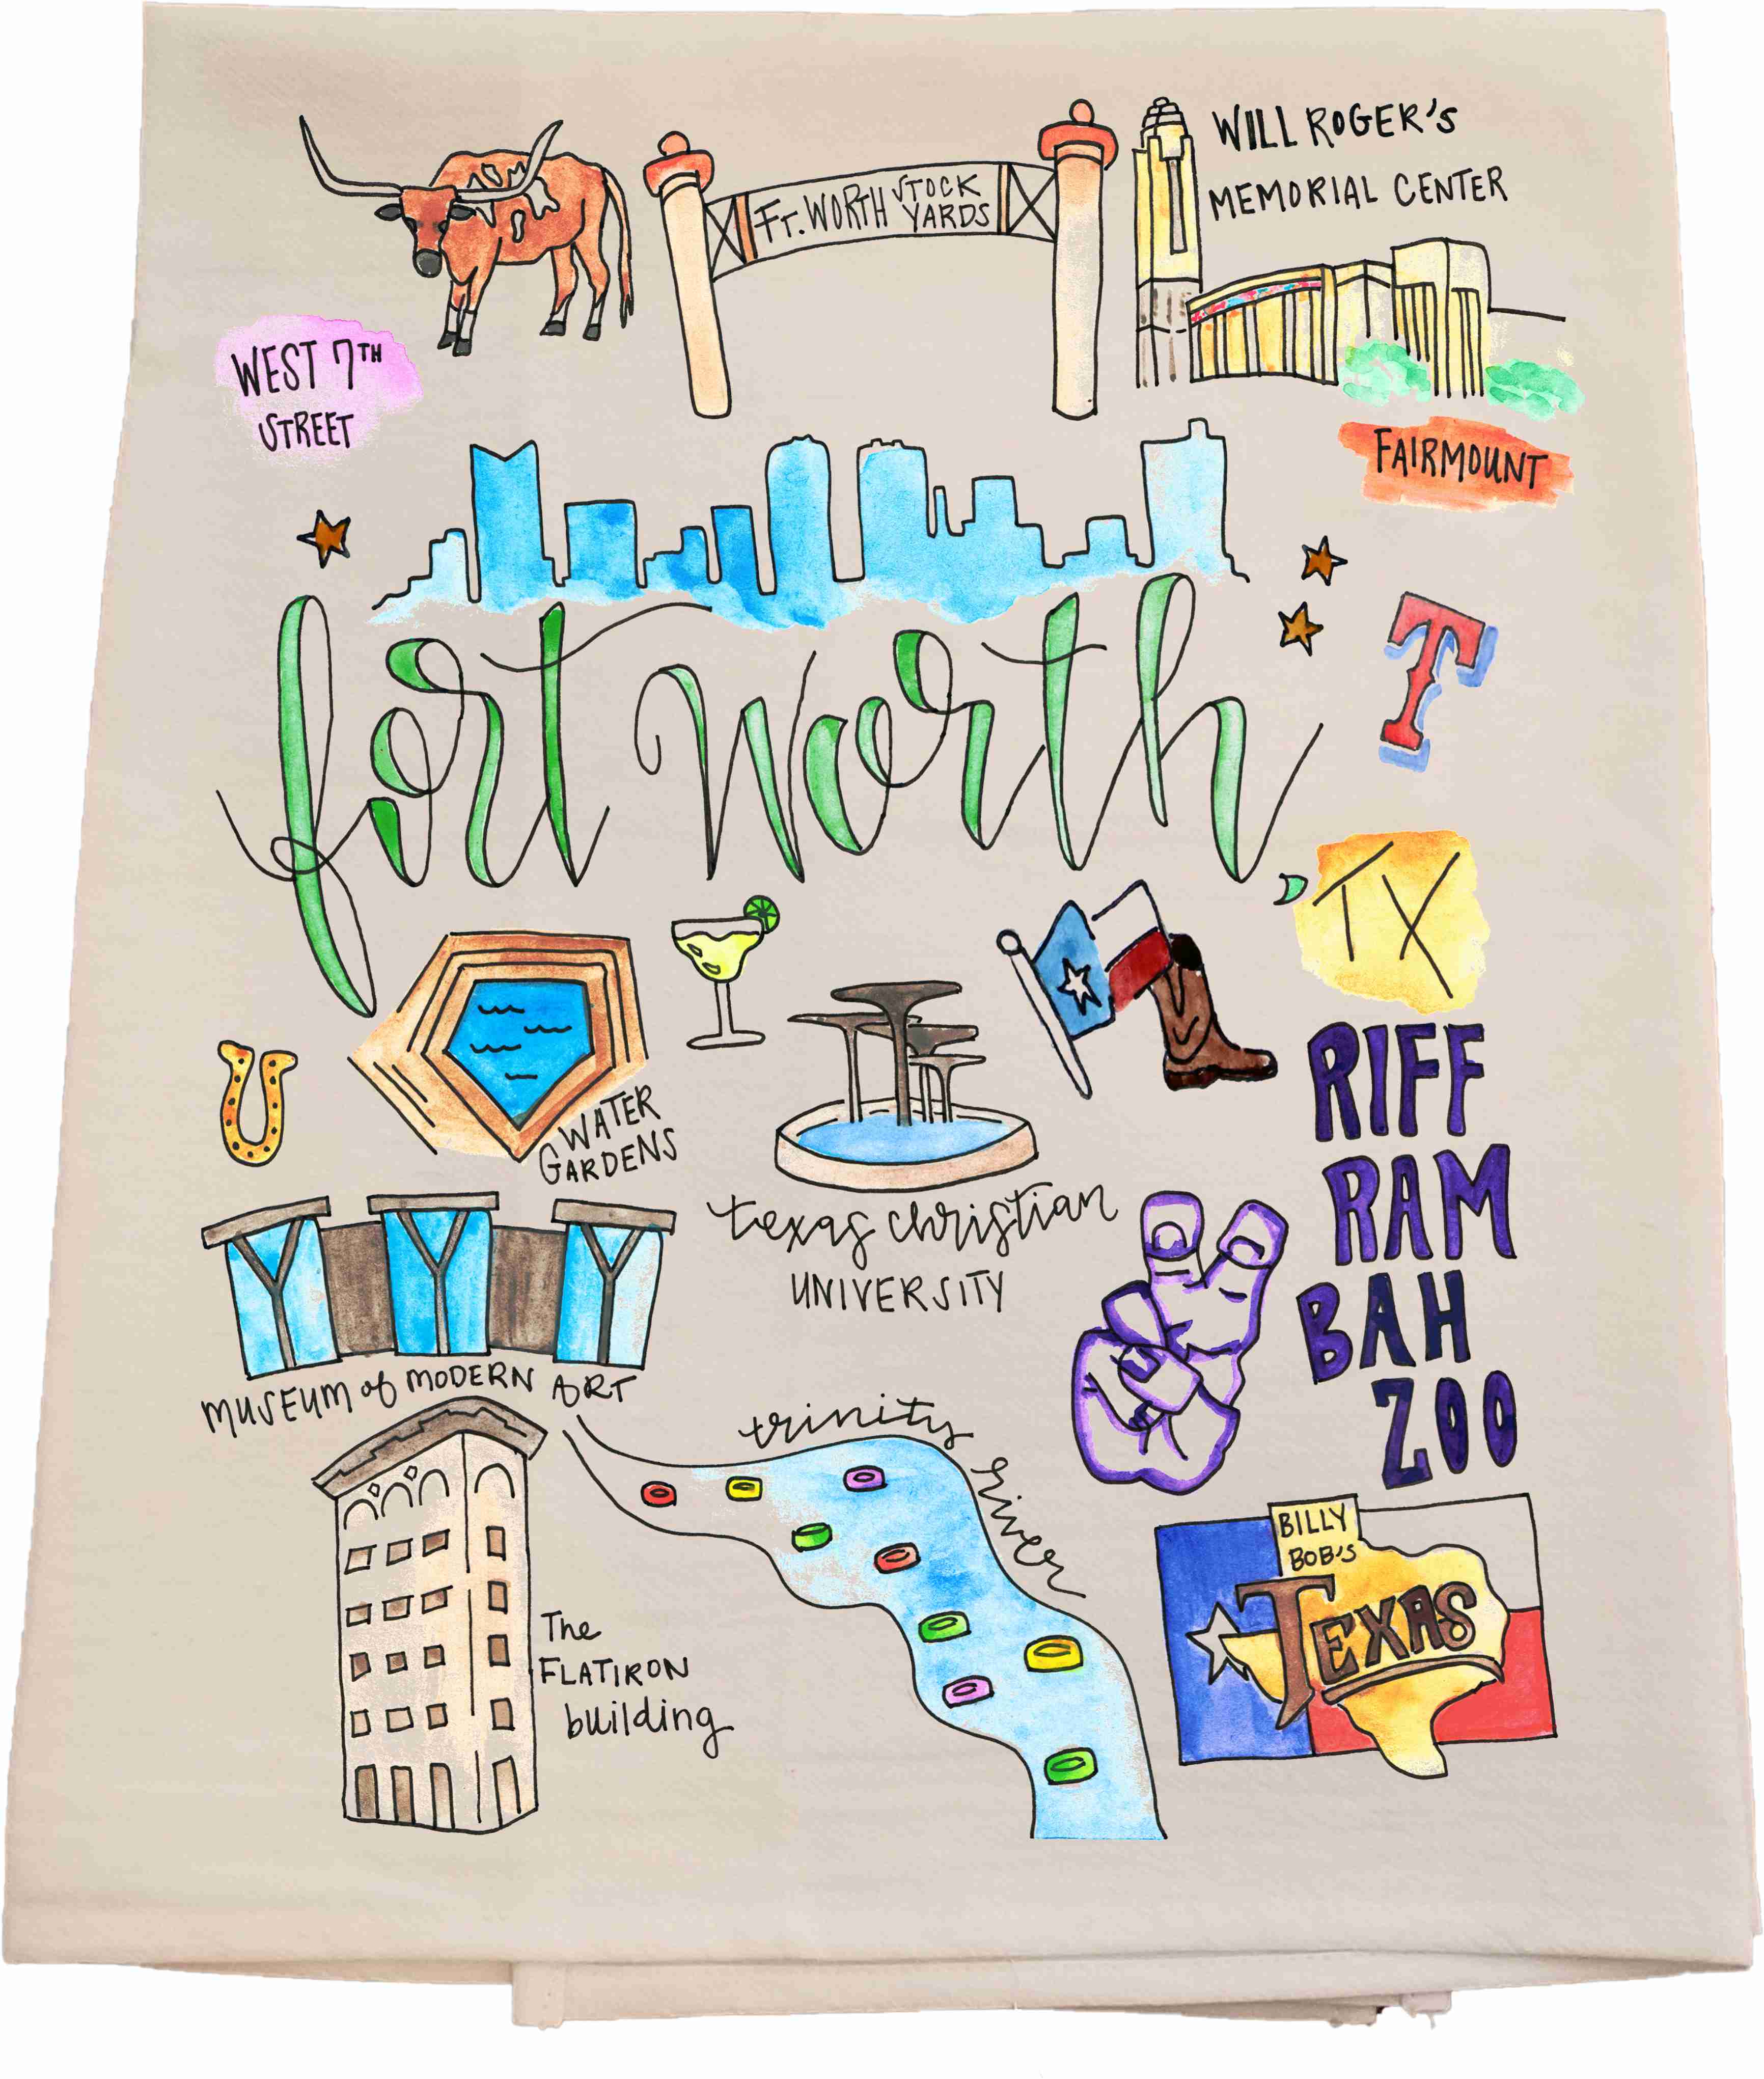 WILL ROGER'S
MEMORIAL CENTER
FT. WORTH STOCK
YARDS
WEST 7TH
STREET
FAIRMOUNT
fort worth,
T
TX
WATER
GARDENS
RIFF
RAM
BAH
ZOO
texas christian
UNIVERSITY
MUSEUM of MODERN ART
trinity
river
BILLY
BOB'S
TEXAS
The
FLATIRON
building